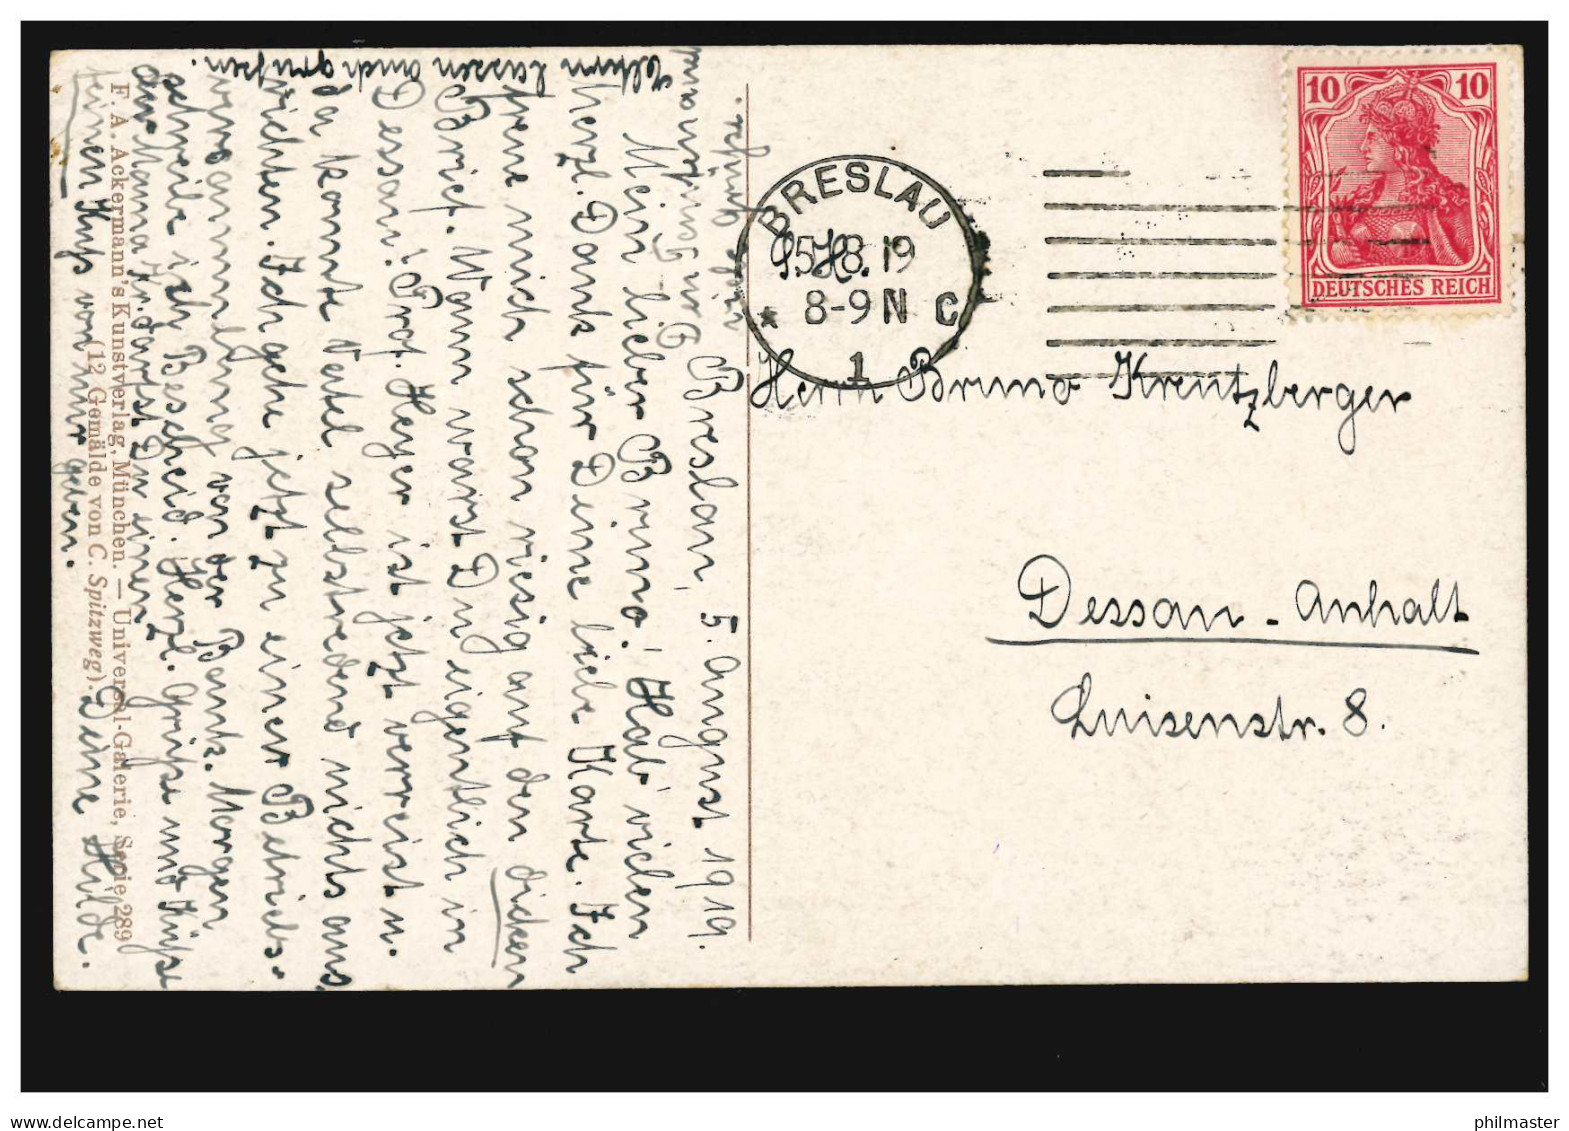 10 10
DEUTSCHES REICH
BRESLAU
5.8.19
8-9 N
* 1 C
Herrn Bruno Kreutzberger
Dessau - Anhalt
Luisenstr. 8.
Breslau, 5. August 1919.
Mein lieber Bruno! Hab' vielen
herzl. Dank für Deine liebe Karte. Ich
freue mich schon riesig auf den dicken
Brief. Wann warst Du eigentlich in
Dessau? Prof. Heyer ist jetzt verreist u.
da konnte Vatel selbstredend nichts aus-
richten. Ich gehe jetzt zu einer Betriebs-
versammlung von der Bank. Morgen
schreibe ich Bescheid. Herzl. Grüße und Küße
der Mama Kr. darfst Du einen
feinen Kuß von mir geben. Deine Hilde.
Eltern lassen auch grüßen.
F. A. Ackermann's Kunstverlag, München. — Universal-Galerie, Serie 289
(12 Gemälde von C. Spitzweg).
philmaster